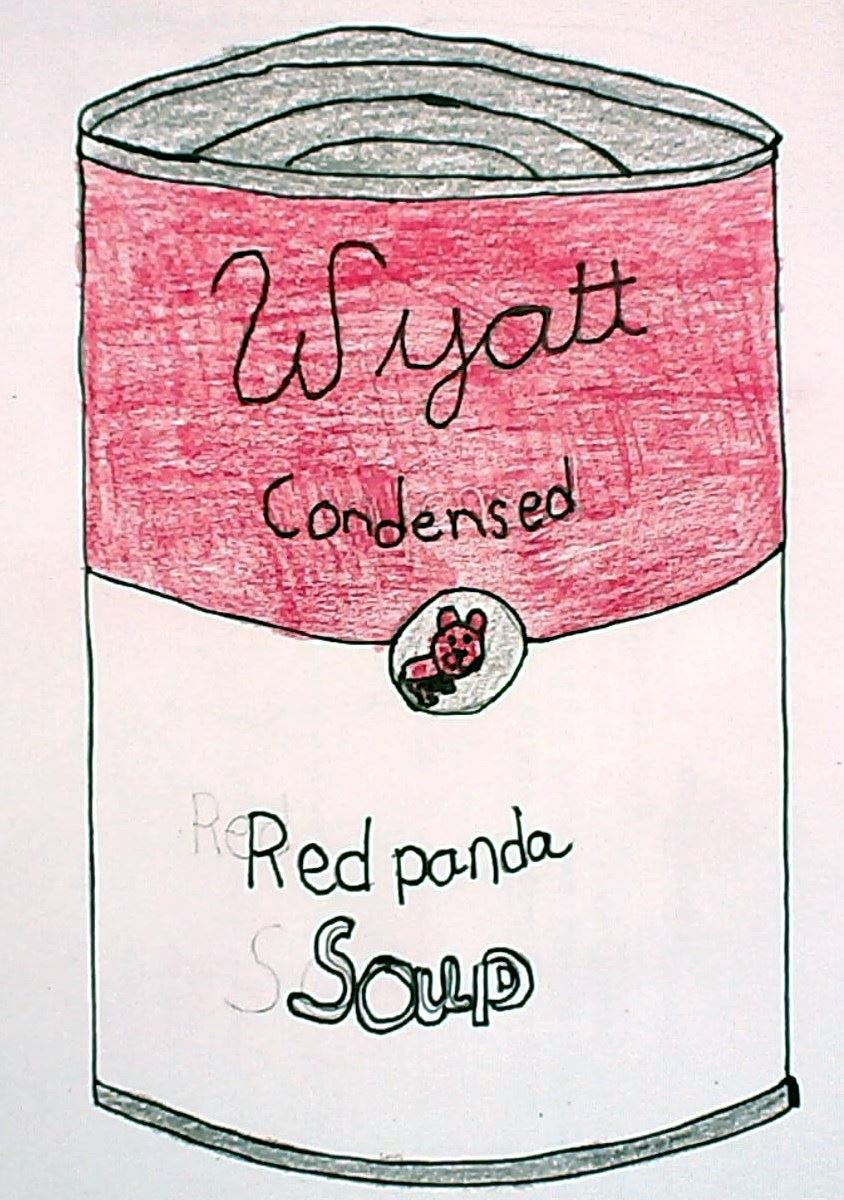 Wyatt
Condensed
Red panda
Soup